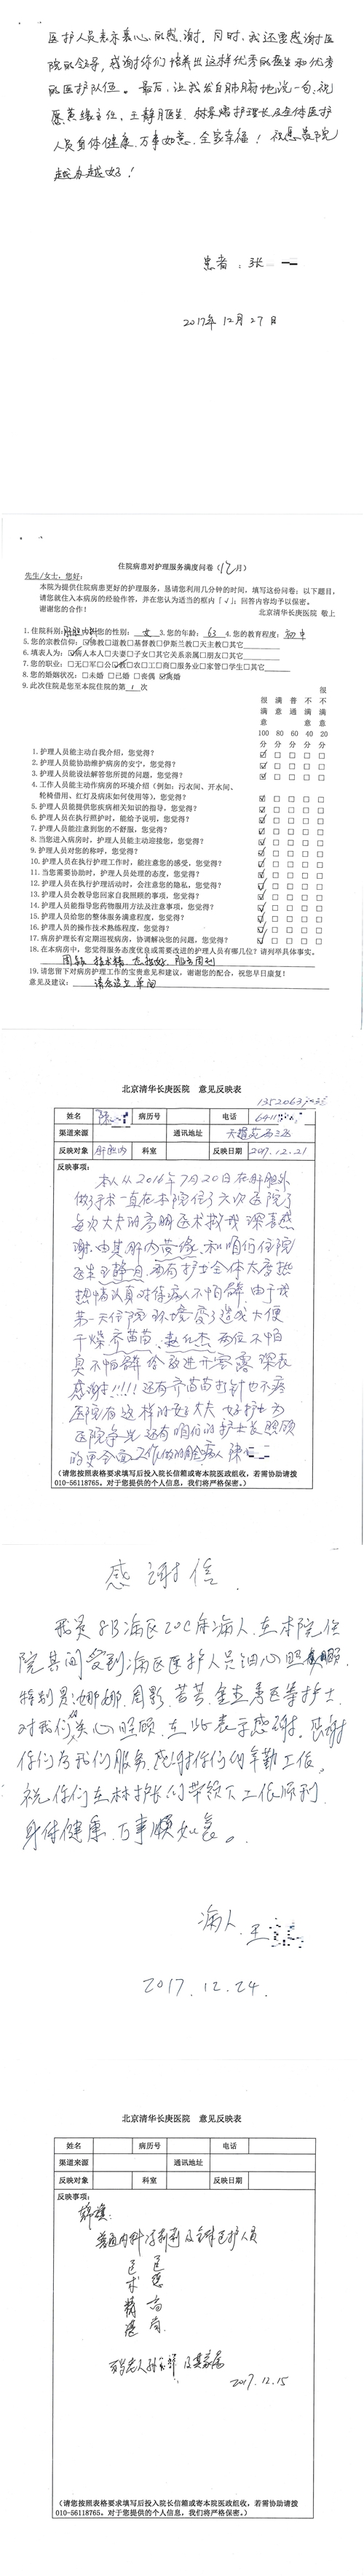 医护人员表示衷心的感谢。同时，我还要感谢医
院的领导，感谢你们培养出这样优秀的医生和优秀
的医护队伍。最后，让我发自肺腑地说一句，祝
愿黄缘主任、王静月医生、林 护理长及全体医护
人员身体健康、万事如意、全家幸福！祝愿贵院
越办越好！
患者：张
2017年12月27日
住院病患对护理服务满度问卷（12月）
先生/女士，您好：
本院为提供住院病患更好的护理服务，恳请您利用几分钟的时间，填写这份问卷；以下题目，
请您就住入本病房的经验作答，并在您认为适当的框内「√」；回答内容均予以保密。
谢谢您的合作！
北京清华长庚医院 敬上
1.住院科别：肝胆内科 2.您的性别：女 3.您的年龄：63 4.您的教育程度：初中
5.您的宗教信仰：☑佛教□道教□基督教□伊斯兰教□天主教□其它
6.填表人为：☑病人本人□夫妻□子女□其它关系亲属□朋友□其它
7.您的职业：□无□军□公☑教□农□工□商□服务业□家管□学生□其它
8.您的婚姻状况：□未婚 □已婚 □丧偶 ☑离婚
9.此次住院是您至本院住院的第1次
很满意 满意 普通 不满意 很不满意
100分 80分 60分 40分 20分
1.护理人员能主动自我介绍，您觉得？ ☑ □ □ □ □
2.护理人员能协助维护病房的安宁，您觉得？ ☑ □ □ □ □
3.护理人员能设法解答您所提的问题，您觉得？ ☑ □ □ □ □
4.工作人员能主动作病房的环境介绍（例如：污衣间、开水间、
轮椅借用、红灯及病床如何使用等），您觉得？ ☑ □ □ □ □
5.护理人员能提供您疾病相关知识的指导，您觉得？ ☑ □ □ □ □
6.护理人员在执行照护时，能给予说明，您觉得？ ☑ □ □ □ □
7.护理人员能注意到您的不舒服，您觉得？ ☑ □ □ □ □
8.当您进入病房时，护理人员能主动迎接您，您觉得？ ☑ □ □ □ □
9.护理人员对您的称呼，您觉得？ ☑ □ □ □ □
10.护理人员在执行护理工作时，能注意您的感受，您觉得？ ☑ □ □ □ □
11.当您需要协助时，护理人员处理的态度，您觉得？ ☑ □ □ □ □
12.护理人员在执行护理活动时，会注意您的隐私，您觉得？ ☑ □ □ □ □
13.护理人员会教导您回家自我照顾的事项，您觉得？ ☑ □ □ □ □
14.护理人员能指导您药物服用方法及注意事项，您觉得？ ☑ □ □ □ □
15.护理人员给您的整体服务满意程度，您觉得？ ☑ □ □ □ □
16.护理人员的操作技术熟练程度，您觉得？ ☑ □ □ □ □
17.病房护理长有定期巡视病房，协调解决您的问题，您觉得？ ☑ □ □ □ □
18.在本病房中，您觉得服务态度优良或需要改进的护理人员有哪几位？请列举具体事实。
周颖 技术精 态度好 服务周到
19.请您留下对病房护理工作的宝贵意见和建议，谢谢您的配合，祝您早日康复！
意见及建议： 请多设立单间
北京清华长庚医院 意见反映表
1352063
姓名 陈 病历号 电话 6411
渠道来源 通讯地址 天通苑西三区
反映对象 肝胆内 科室 反映日期 2017.12.21
反映事项：
本人从2016年7月20日在肝胆外
做手术一直在本院住了六次医院了
每次大夫的高明医术救我深表感
谢.由其肝内黄缘.和咱们住院
医生王静月.两有护士全体态度热
热情认真对待病人不怕群.由于我
第一天住院环境变了造成大便
干燥齐苗苗.赵红杰两位不怕
臭不怕群给我进开塞露深表
感谢！！！！还有齐苗苗打针也不疼
医院有这样的好大夫好护士为
医院争光还有咱们的护士长照顾
的更全面工作做的 病人 陈
（请您按照表格要求填写后投入院长信箱或寄本院医政组收，若需协助请拨
010-56118765。对于您提供的个人信息，我们将严格保密。）
感谢信
我是8B病区20C床病人.在本院住
院其间受到病区医护人员细心照顾.
特别是娜娜.周影.苗苗. 等护士
对我们关心照顾.在此表示感谢.感谢
你们为我们服务.感谢你们的辛勤工作.
祝你们在林护长的带领下工作顺利
身体健康.万事顺如意。
病人.王
2017.12.24.
北京清华长庚医院 意见反映表
姓名 病历号 电话
渠道来源 通讯地址
反映对象 科室 反映日期
反映事项：
锦旗：
普通内科 及全体医护人员
医术精湛
医德高尚
及其家属
2017.12.15
（请您按照表格要求填写后投入院长信箱或寄本院医政组收，若需协助请拨
010-56118765。对于您提供的个人信息，我们将严格保密。）